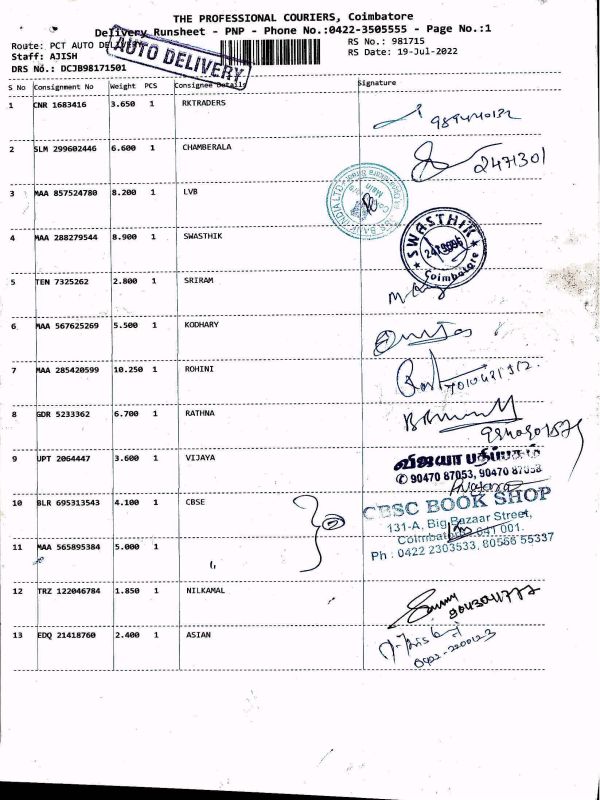 THE PROFESSIONAL COURIERS, Coimbatore
Delivery Runsheet - PNP - Phone No.:0422-3505555 - Page No.:1
Route: PCT AUTO DELIVERY
RS No.: 981715
Staff: AJISH
RS Date: 19-Jul-2022
DRS No.: DCJB98171501
AUTO DELIVERY
S No Consignment No Weight PCS Consignee Details Signature
1 CNR 1683416 3.650 1 RKTRADERS
2 SLM 299602446 6.600 1 CHAMBERALA 2471301
3 MAA 857524780 8.200 1 LVB
4 MAA 288279544 8.900 1 SWASTHIK
SWASTHIK
Coimbatore
5 TEN 7325262 2.800 1 SRIRAM
6 MAA 567625269 5.500 1 KODHARY
7 MAA 285420599 10.250 1 ROHINI
8 GDR 5233362 6.700 1 RATHNA
9 UPT 2064447 3.600 1 VIJAYA
விஜயா பதிப்பகம்
✆ 90470 87053, 90470 87058
10 BLR 695313543 4.100 1 CBSE
CBSC BOOK SHOP
131-A, Big Bazaar Street,
Coimbatore 641 001.
Ph : 0422 2303533, 80566 55337
11 MAA 565895384 5.000 1
12 TRZ 122046784 1.850 1 NILKAMAL
13 EDQ 21418760 2.400 1 ASIAN